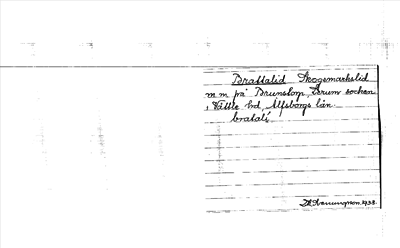 Brattalid Skogsmarkslid
m m på Brunstorp, Lerum socken
i Vättle hd, Älfsborgs län.
bratalí
1938.